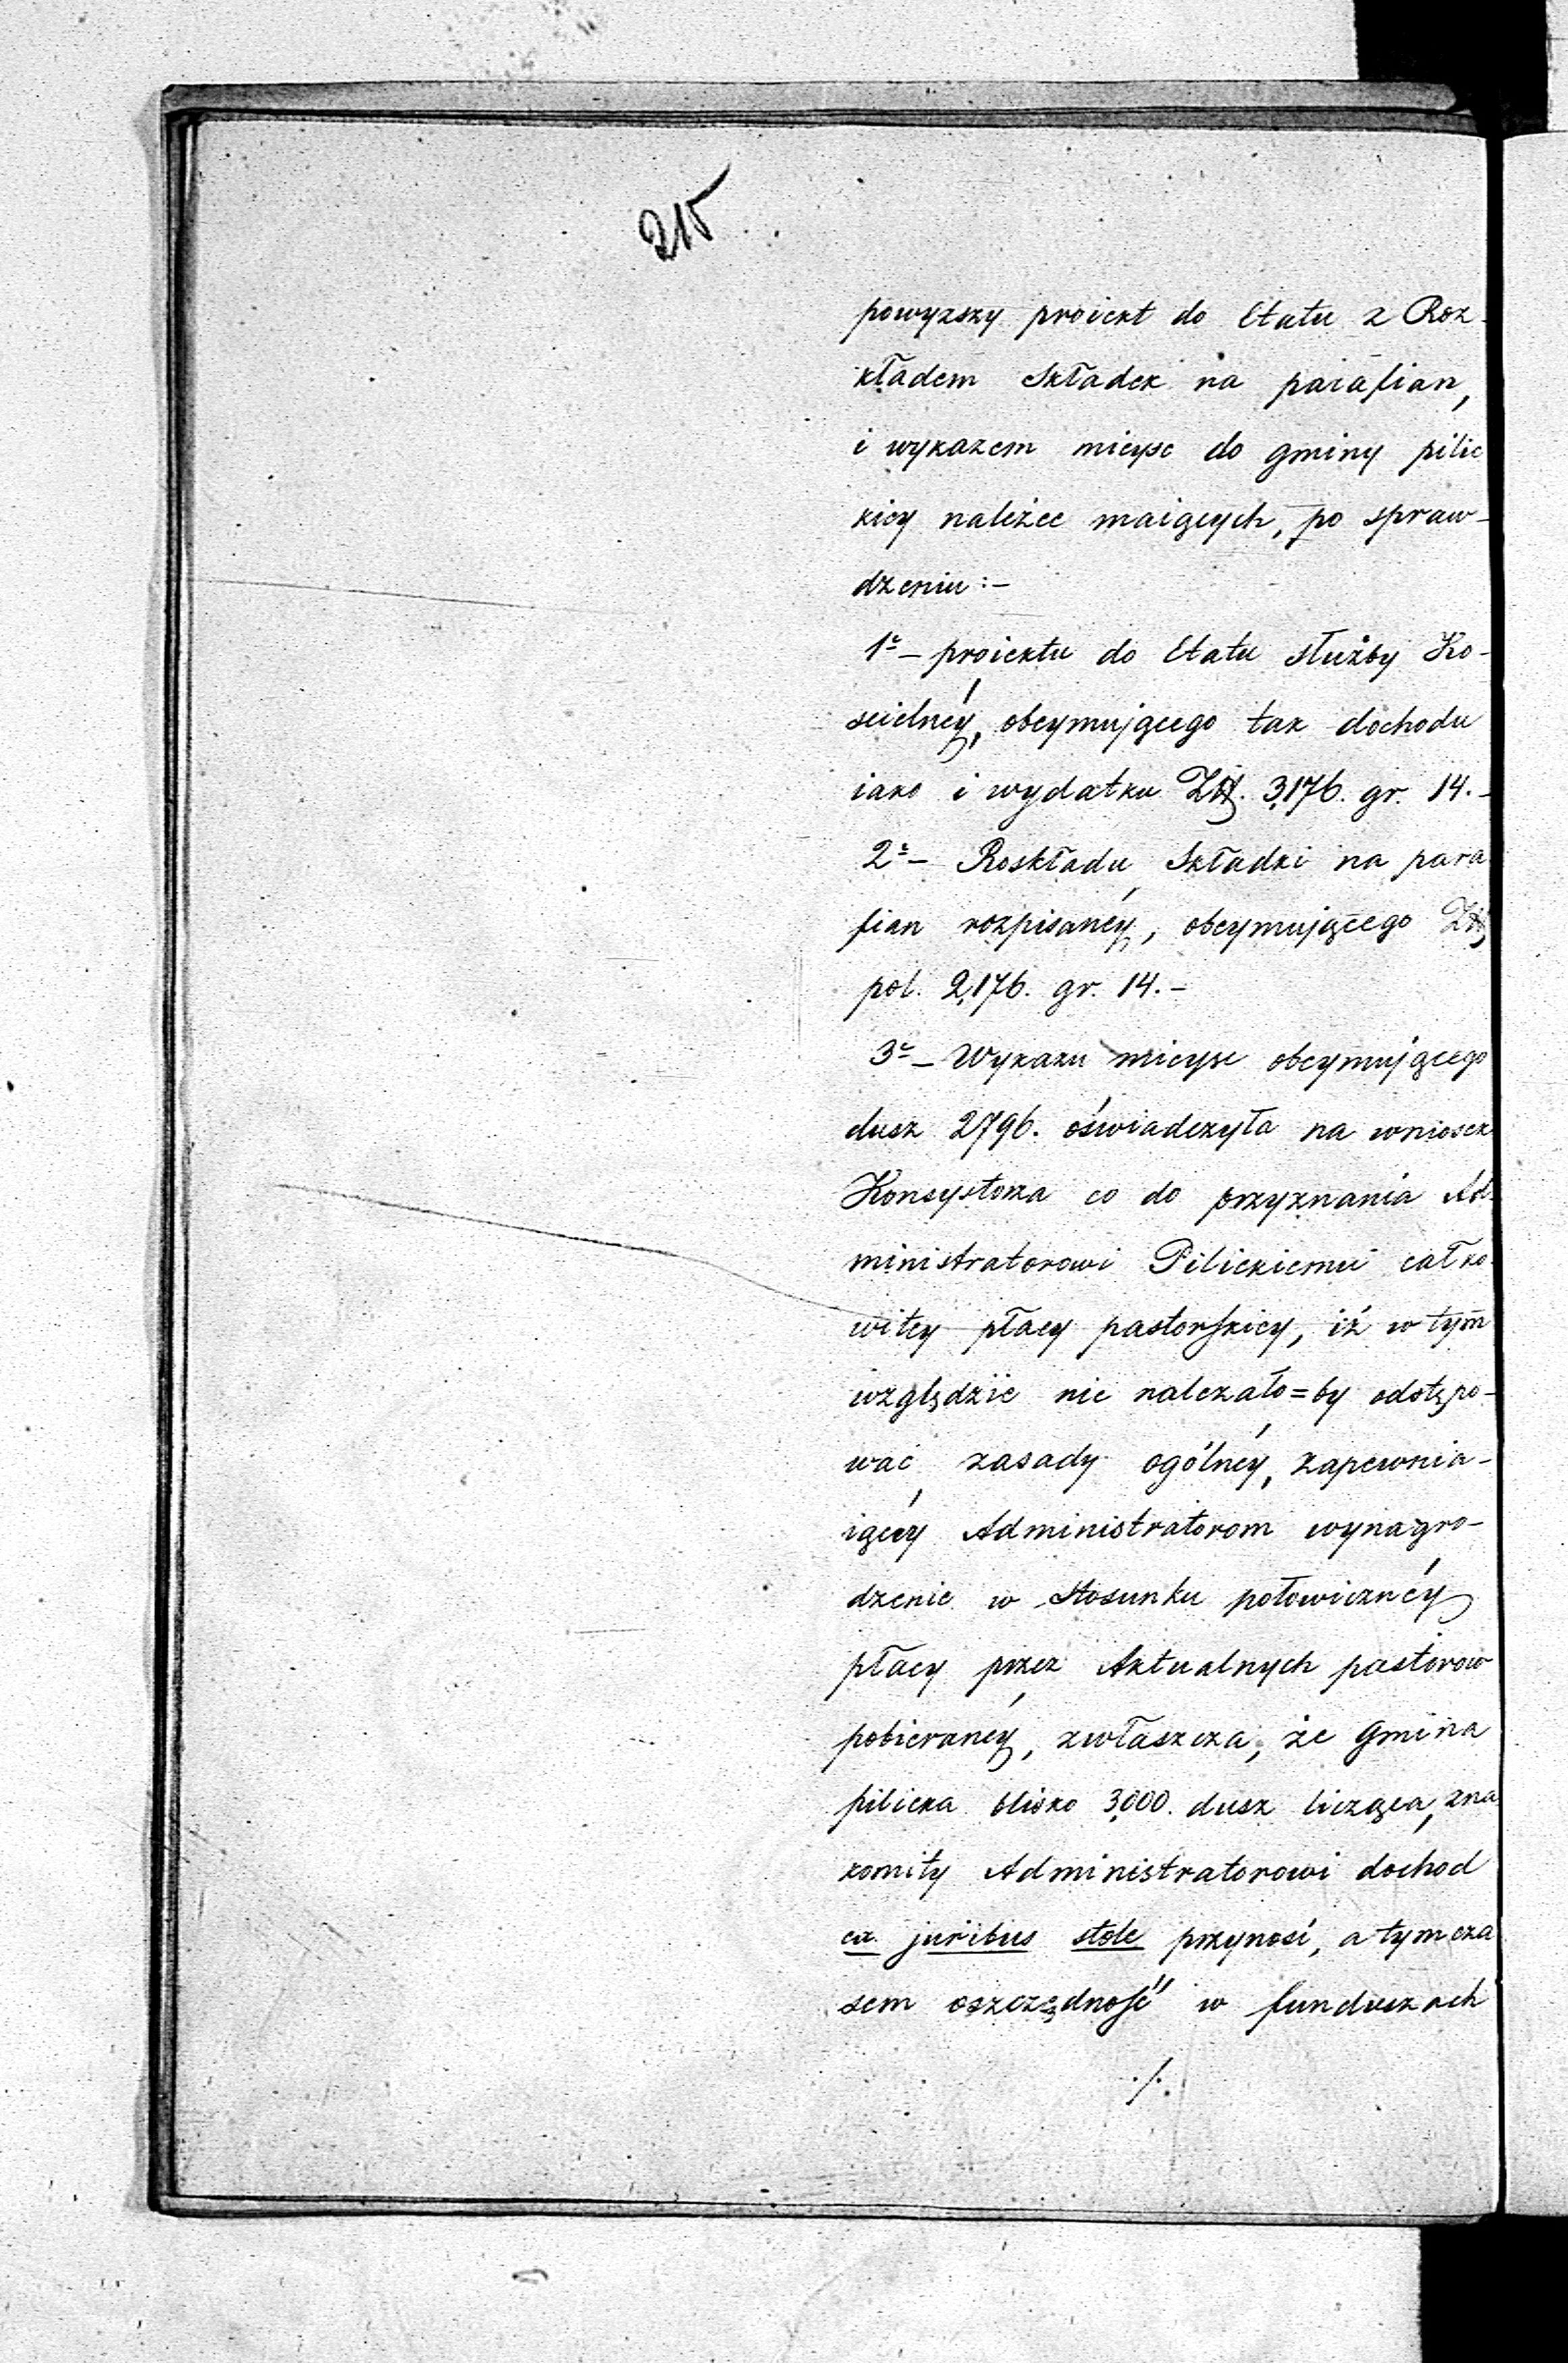 215
powyższy proiekt do Etatu z Roz-
kładem Składek na parafian,
i wykazem mieysc do gminy pilic
kiey należec maiących, po spraw-
dzeniu :-
1e - proiektu do Etatu służby Ko-
scielnéy, obeymującego tak dochodu
iako i wydatku Złt. 3,176. gr. 14.-
2e - Roskładu Składki na para
fian rozpisanéy, obeymującego Złt
pol. 2,176. gr. 14.-
3e - Wykazu mieysc obeymującego
dusz 2796. oświadczyła na wniosek
Konsystorza co do przyznania Ad-
ministratorowi Pilickiemu całko
witey płacy pastorskiey, iż w tym
względzie nie należało=by odstępo-
wać zasady ogólnéy, zapewnia-
iącéy Administratorom wynagro-
dzenie w Stosunku połowicznéy
płacy przez Aktualnych pastorow
pobieranéy, zwłaszcza, że Gmina
pilicka blisko 3,000. dusz licząca, zna
komity Administratorowi dochod
ex. juribus stole przynosi, a tymcza
sem oszczędność w funduszach
./.